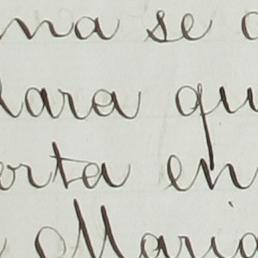 ma se
lara qu
orta en
Maria